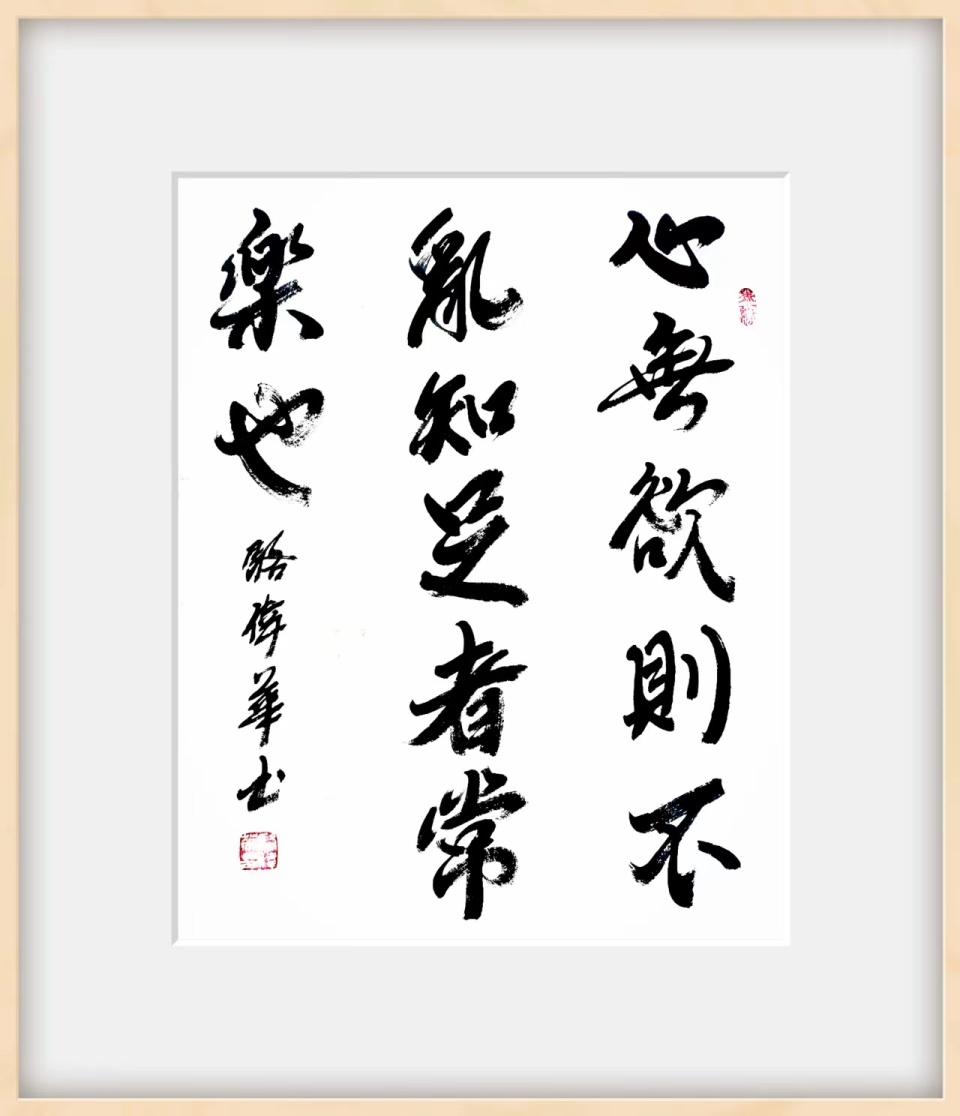 心無欲則不
亂知足者常
樂也
駱偉華书